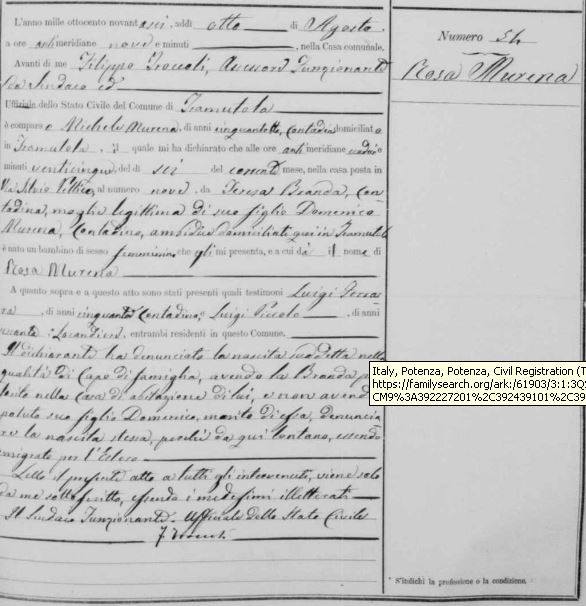 L'anno mille ottocento novantasei, addì otto di Agosto
a ore antimeridiane nove e minuti , nella Casa comunale.
Avanti di me Filippo Troccoli, Assessore Funzionante
da Sindaco ed
Uffiziale dello Stato Civile del Comune di Tramutola
è comparso Michele Murena, di anni cinquantotto, contadino domiciliato
in Tramutola, il quale mi ha dichiarato che alle ore antimeridiane undici e
minuti venticinque, del dì sei del corrente mese, nella casa posta in
Via Silvio Pellico, al numero nove, da Teresa Branda, con-
tadina, moglie legittima di suo figlio Domenico
Murena, Contadino, ambidue domiciliati qui in Tramutola
è nato un bambino di sesso femminino, che gli mi presenta, e a cui dà il nome di
Rosa Murena
A quanto sopra e a questo atto sono stati presenti quali testimoni Luigi Ferra-
ra, di anni cinquanta Contadino, e Luigi Piccolo, di anni
, Locandiere, entrambi residenti in questo Comune.
Il dichiarante ha denunciato la nascita suddetta nella
qualità di Capo di famiglia, avendo la Branda par-
torito nella Casa di abitazione di lui, e non avendo
potuto suo figlio Domenico, marito di essa, denuncia-
re la nascita stessa, perché da qui lontano, essendo
emigrato per l'Estero.
Letto il presente atto a tutti gli intervenuti, viene solo
da me sottoscritto, essendo i medesimi illetterati
Il Sindaco Funzionante Uffiziale dello Stato Civile
Numero 54
Rosa Murena
Italy, Potenza, Potenza, Civil Registration (T
https://familysearch.org/ark:/61903/3:1:3Q
CM9%3A392227201%2C392439101%2C39
* S'indichi la professione o la condizione.